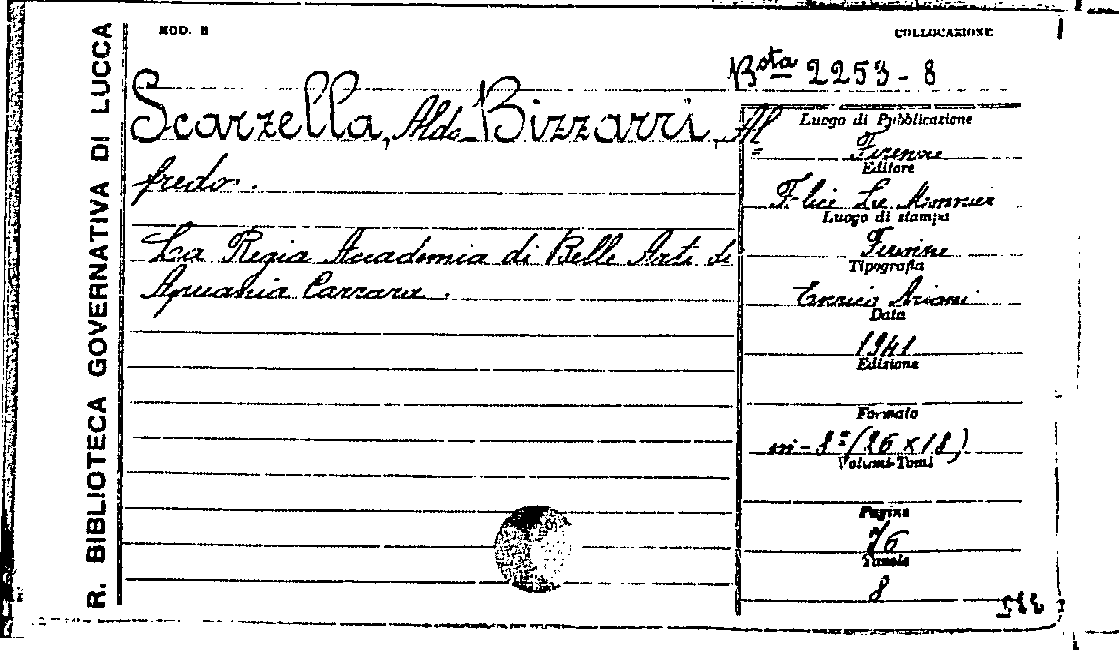 R. BIBLIOTECA GOVERNATIVA DI LUCCA
MOD. B
COLLOCAZIONE
Bsta 2253-8
Scarzella, Aldo Bizzarri, Al
=
fredo.
La Regia Accademia di Belle Arti di
Apuania Carrara.
Luogo di Pubblicazione
Firenze
Editore
Felice Le Monnier
Luogo di stampa
Firenze
Tipografia
Enrico Ariani
Data
1941
Edizione
Formato
in-8º (26 x 18)
Volumi-Tomi
Pagine
76
Tavole
8